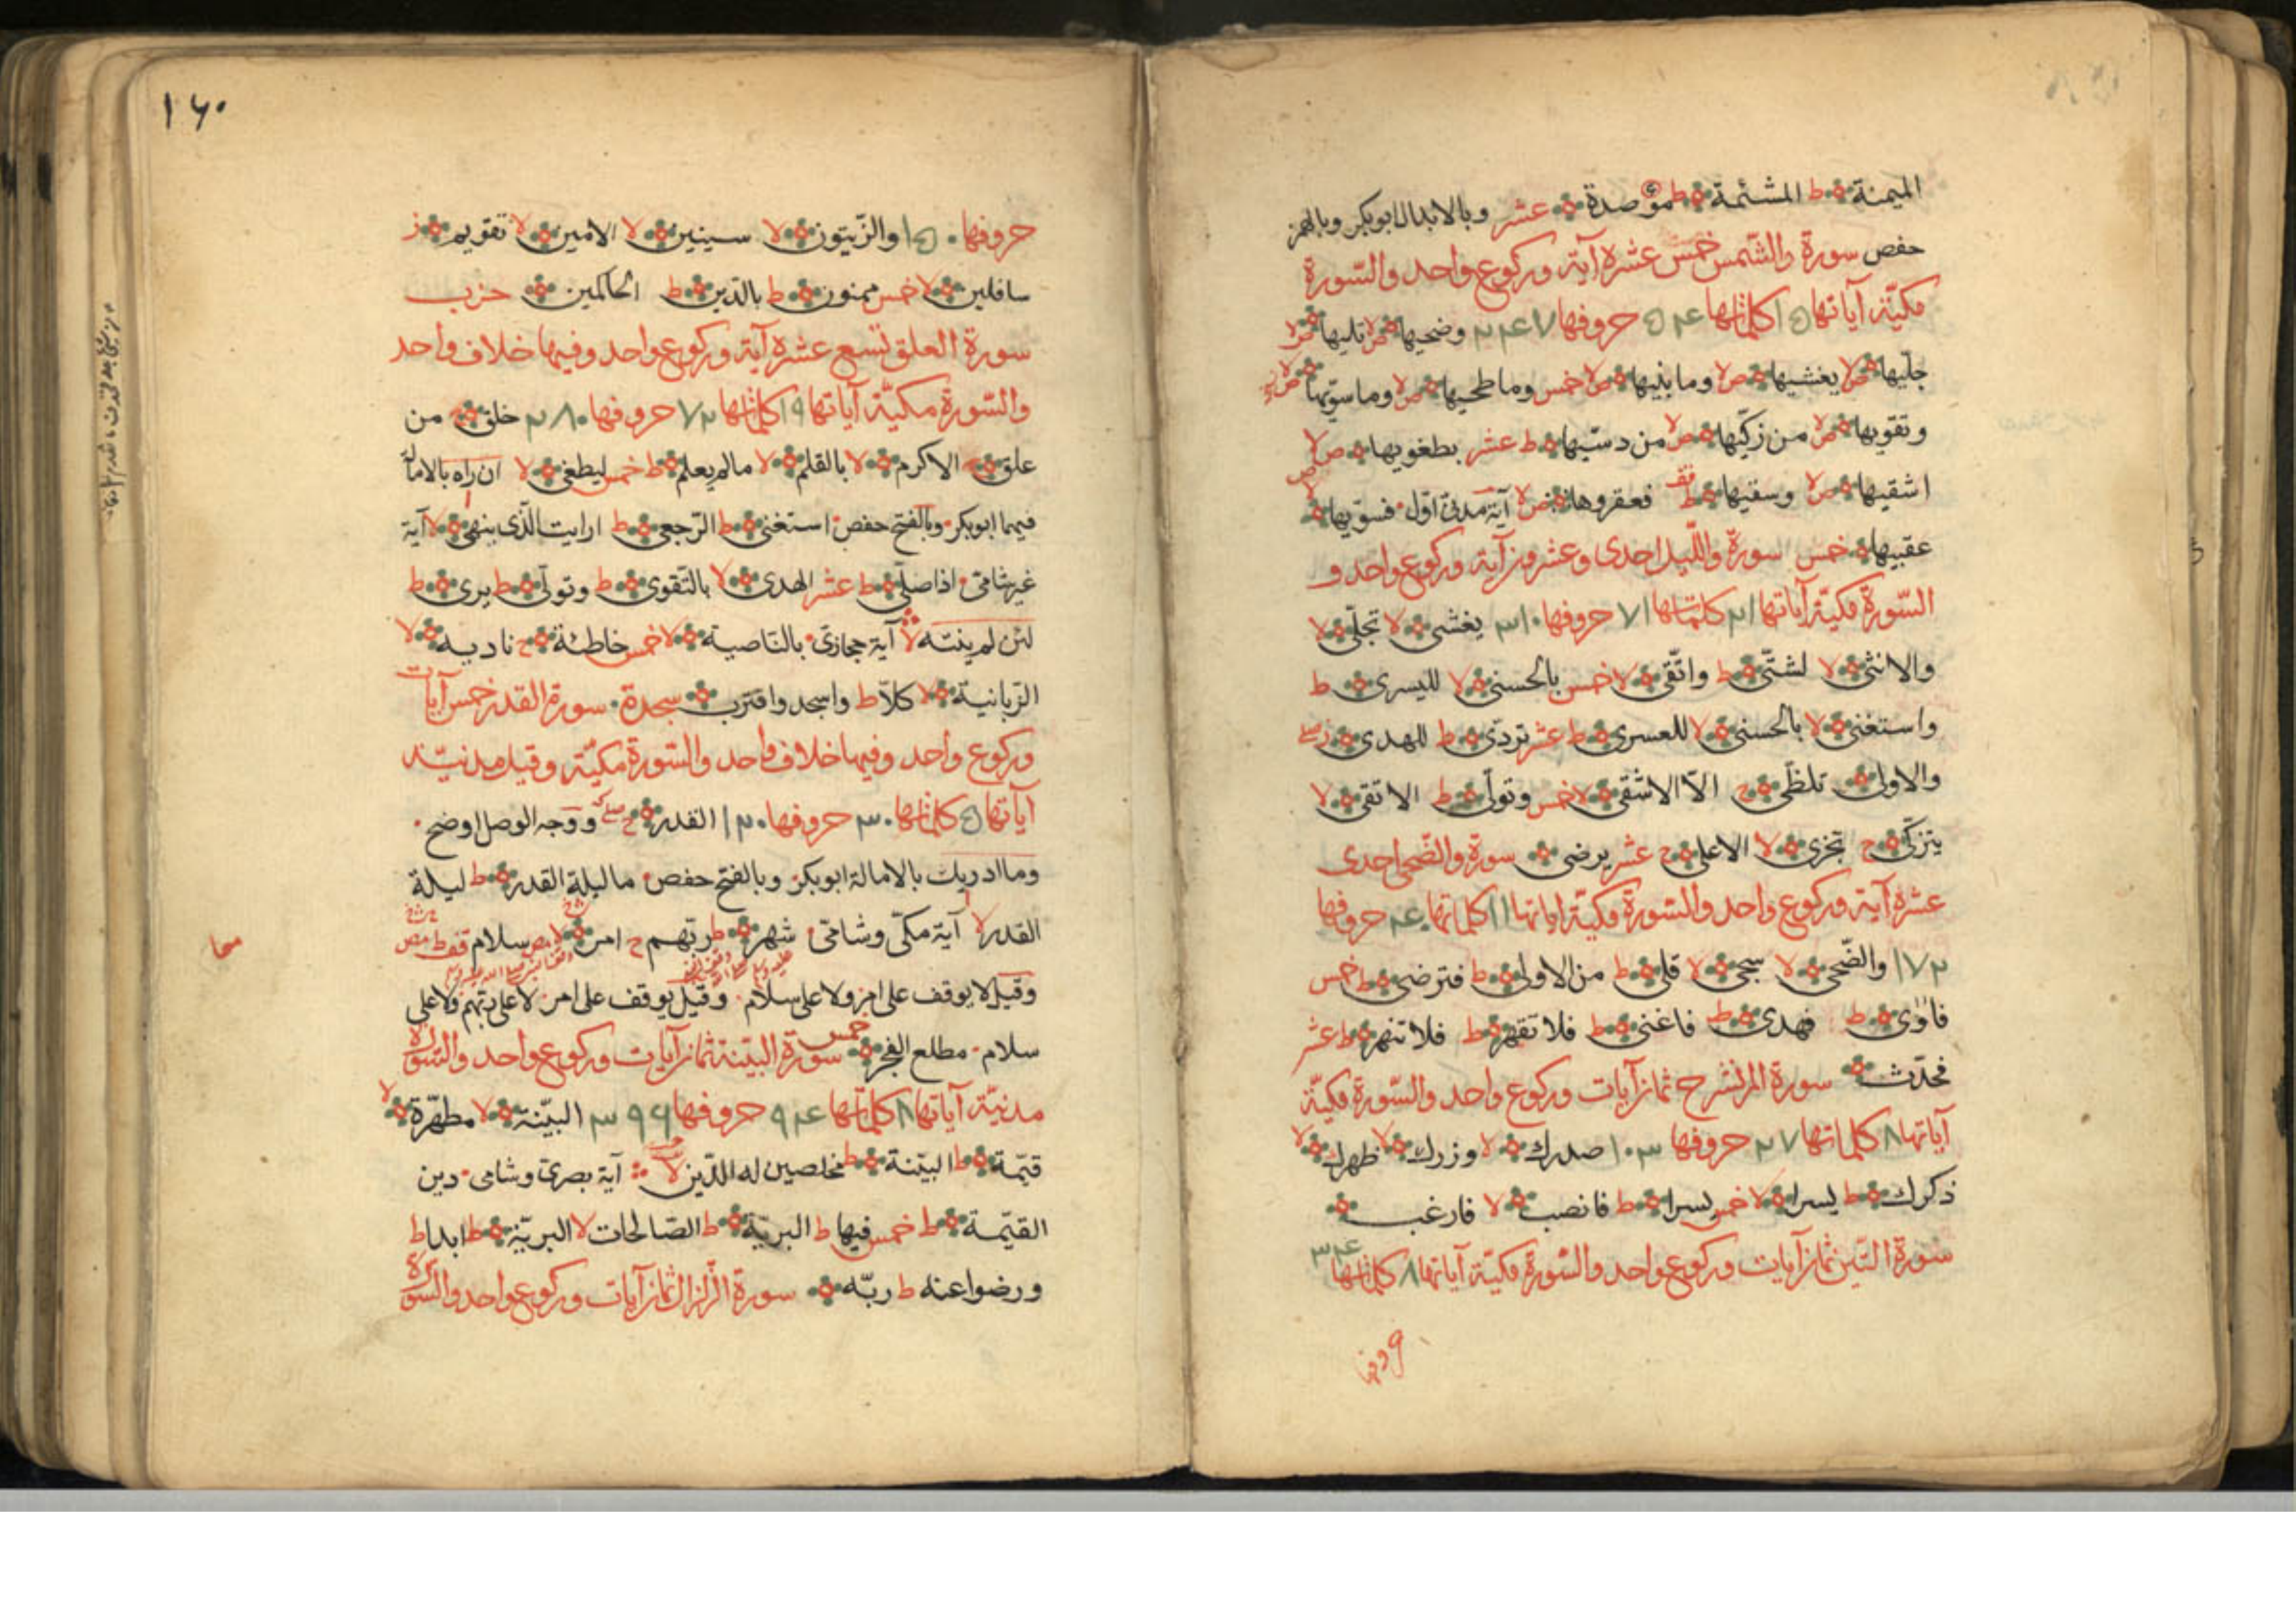 الميمنة ط المشئمة ط موصدة عشر وبالابدال ابوبكر وبالهمز
حفص سورة والشمس خمس عشرة آية وركوع واحد والسورة
مكيّة آياتها ١٥ كلماتها ٥٤ حروفها ٢٤٧ وضحيها ص لا تليها ص لا
جلّيها ص لا يغشيها ص لا وما بنيها ص لا خمس وما طحيها ص لا وما سوّيها ص
وتقويها ص لا من زكّيها ص لا من دسّيها ط عشر بطغويها ص لا
اشقيها ص لا وسقيها ط قف فعقروها ص لا آية مدنىّ اوّل فسوّيها ص لا
عقبيها خمس سورة والليل احدى وعشرون آية وركوع واحد و
السّورة مكيّة آياتها ٢١ كلماتها ٧١ حروفها ٣١٠ يغشى لا تجلّى لا
والانثى لا لشتّى ط واتّقى لا خمس بالحسنى لا لليسرى ط
واستغنى لا بالحسنى لا للعسرى ط عشر تردّى ط للهدى ز صلى
والاولى تلظّى ج الّا الاشقى لا خمس وتولّى ط الاتقى لا
يتزكّى ج تجزى لا الاعلى ج عشر يرضى سورة والضّحى احدى
عشرة آية وركوع واحد والسّورة مكيّة آياتها ١١ كلماتها ٤٠ حروفها
١٧٢ والضّحى لا سجى لا قلى ط من الاولى ط فترضى ط خمس
فاوى ط فهدى ط فاغنى ط فلا تقهر ط فلا تنهر ط عشر
فحدّث سورة الم نشرح ثمان آيات وركوع واحد والسّورة مكيّة
آياتها ٨ كلماتها ٢٧ حروفها ١٠٣ صدرك لا وزرك لا ظهرك لا
ذكرك ط يسرا لا خمس يسرا ط فانصب لا فارغب
سورة التين ثمان آيات وركوع واحد والسّورة مكيّة آياتها ٨ كلماتها ٣٤
١٦٠
حروفها ١٥٠ والزّيتون لا سينين لا الامين لا تقويم ز
سافلين لا خمس ممنون ط بالدّين ط الحاكمين حزب
سورة العلق تسع عشرة آية وركوع واحد وفيها خلاف واحد
والسّورة مكيّة آياتها ١٩ كلماتها ٧٢ حروفها ٢٨٠ خلق ج من
علق ج الاكرم لا بالقلم لا مالم يعلم ط خمس ليطغى لا ان راه بالامالة
فيهما ابوبكر وبالفتح حفص استغنى ط الرّجعى ط ارايت الّذى ينهى لا آية
غير شامىّ اذا صلّى ط عشر الهدى لا بالتّقوى ط وتولّى ط يرى ط
لئن لم ينته لا آية حجازىّ بالنّاصية لا خمس خاطئة ج ناديه لا
الزّبانية لا كلّا ط واسجد واقترب سجدة سورة القدر خمس آيات
وركوع واحد وفيها خلاف واحد والسّورة مكيّة وقيل مدنيّة
آياتها ٥ كلماتها ٣٠ حروفها ١٢٠ القدر ج ووجه الوصل اوضح
وما ادريك بالامالة ابوبكر وبالفتح حفص ما ليلة القدر ط ليلة
القدر لا آية مكّى وشامىّ شهر ط ربّهم ج امر لا سلام قف ط
وقيل لا يوقف على امر ولا على سلام وقيل يوقف على امر لا على ربّهم ولا على
سلام مطلع الفجر خمس سورة البيّنة ثمان آيات وركوع واحد والسّورة
مدنيّة آياتها ٨ كلماتها ٩٤ حروفها ٣٩٩ البيّنة لا مطهّرة لا
قيّمة ط البيّنة ط مخلصين له الدّين لا آية بصرىّ وشامى دين
القيّمة ط خمس فيها ط البريّة ط الصّالحات لا البريّة ط ابدا ط
ورضوا عنه ط ربّه سورة الزّلزال ثمان آيات وركوع واحد والسّورة